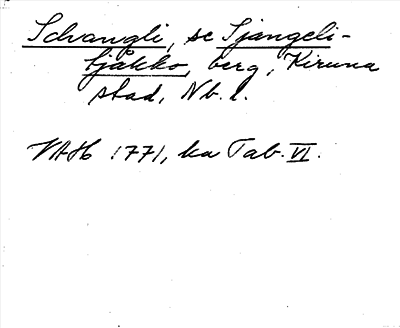 Schangli, se Sjangeli-
tjåkko, berg, Kiruna
stad, Nb. l.
VAH 1771, ka Tab. VI.